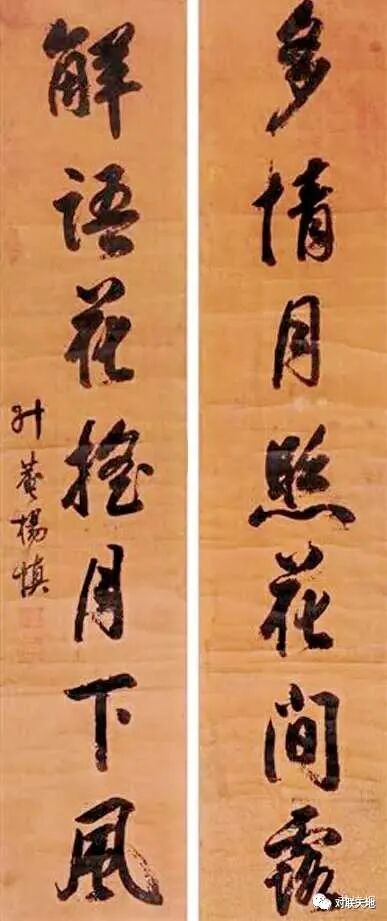 多情月照花間露
解語花搖月下風
升菴楊慎
对联天地